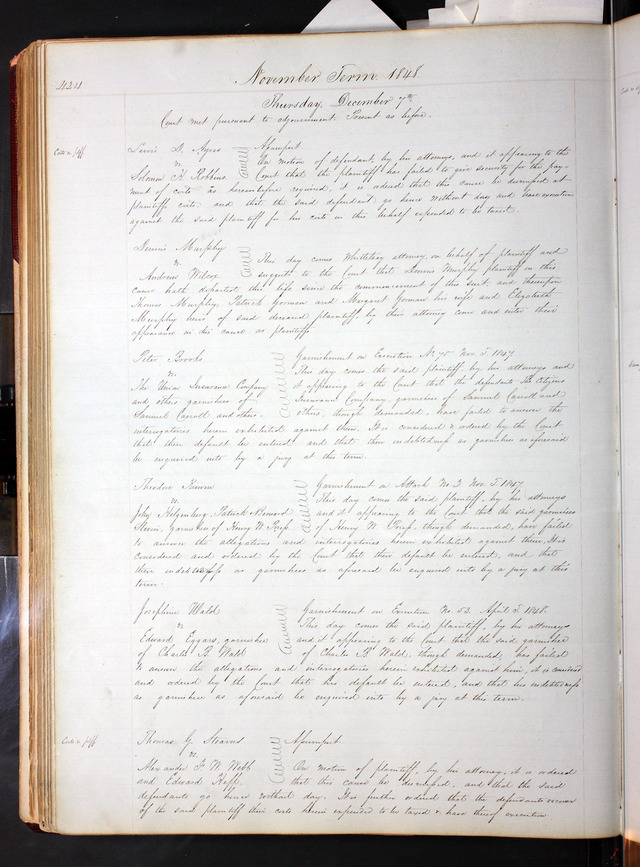 424
November Term 1848
Thursday, December 7th
Court met pursuant to adjournment. Present as before.
Costs v. plff
Lewis A. Ayres
vs.
Solomon H. Robbins
Assumpsit
On motion of defendant, by his attorneys, and it appearing to the
Court that the plaintiff has failed to give security for the pay-
ment of costs as heretofore required, it is ordered that this cause be dismissed at
plaintiffs costs and that the said defendant go hence without day and have execution
against the said plaintiff for his costs in this behalf expended to be taxed.
Dennis Murphy
vs.
Andrew Wilcox
This day comes Whittelsey attorney, on behalf of plaintiff and
suggests to the Court that Dennis Murphy plaintiff in this
cause hath departed this life since the commencement of this suit, and thereupon
Thomas Murphy, Patrick Gorman and Margaret Gorman his wife and Elizabeth
Murphy heirs of said deceased plaintiff, by their attorney come and enter their
appearance in this cause as plaintiffs
Peter Brooks
vs.
The Union Insurance Company
and others garnishees of
Samuel Carroll and others.
Garnishment on Execution No 75 Nov. T. 1847
This day comes the said plaintiff, by his attorneys and
it appearing to the Court that the defendants the Citizens
Insurance Company, garnishees of Samuel Carroll and
others, though demanded, have failed to answer the
interrogatories herein exhibited against them. It is considered & ordered by the Court
that their default be entered and that their indebtedness as garnishees as aforesaid
be enquired into by a jury at this term.
Theodore
vs.
John Patrick
garnishees of Henry W.
Garnishment on Attach No 3 Nov. T. 1847
This day comes the said plaintiff, by his attorneys
and it appearing to the Court that the said garnishees
of Henry W. though demanded, have failed
to answer the allegations and interrogatories herein exhibited against them, It is
considered and ordered by the Court that their default be entered, and that
their indebtedness as garnishees as aforesaid be enquired into by a jury at this
term.
Josephine Wald
vs
Edward Eggars, garnishee
of Charles R. Wald
Garnishment on Execution No 53. April T. 1848.
This day comes the said plaintiff, by his attorneys
and it appearing to the Court that the said garnishee
of Charles R. Wald, though demanded, has failed
to answer the allegations and interrogatories herein exhibited against him, it is considered
and ordered by the Court that his default be entered, and that his indebtedness
as garnishee as aforesaid be enquired into by a jury at this term.
Costs v. plff
Thomas G. Stearns
vs.
Alexander F. W. Webb
and Edward
Assumpsit
On motion of plaintiff, by his attorney, it is ordered
that this cause be discharged, and that the said
defendants go hence without day. It is further ordered that the defendants recover
of the said plaintiff their costs herein expended to be taxed & have thereof execution